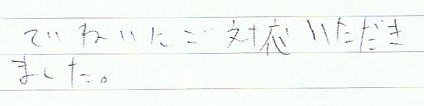 ていねいにご対応いただき
ました。